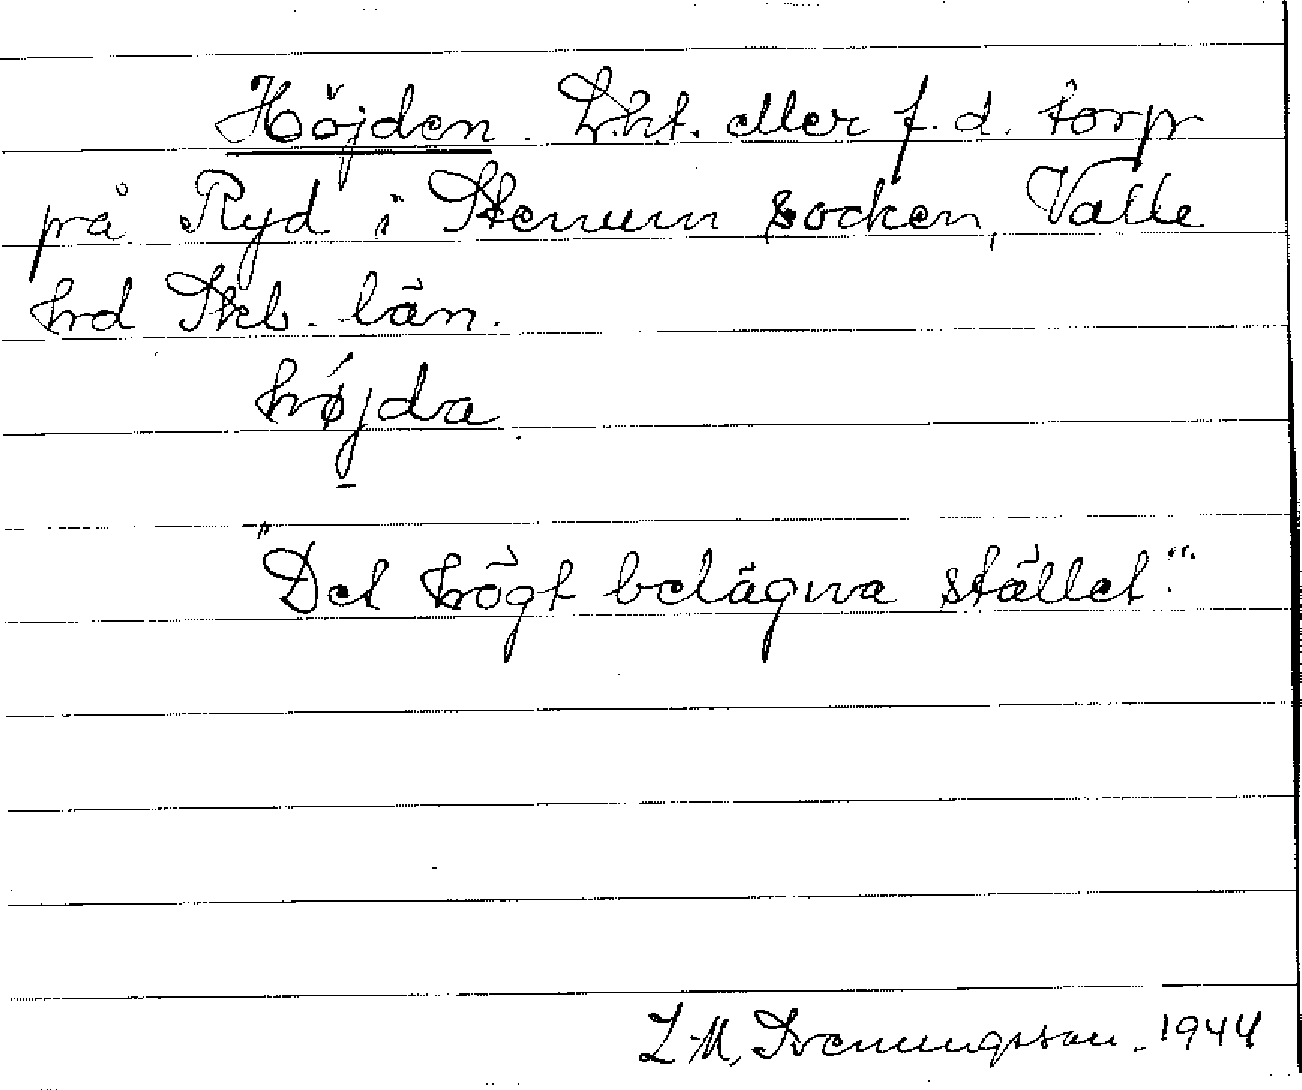 Höjden. Lht. eller f.d. torp
på Ryd i Stenum socken, Valle
hrd Skb. län.
højda
"Det högt belägna stället."
L. M. Svenungsson. 1944